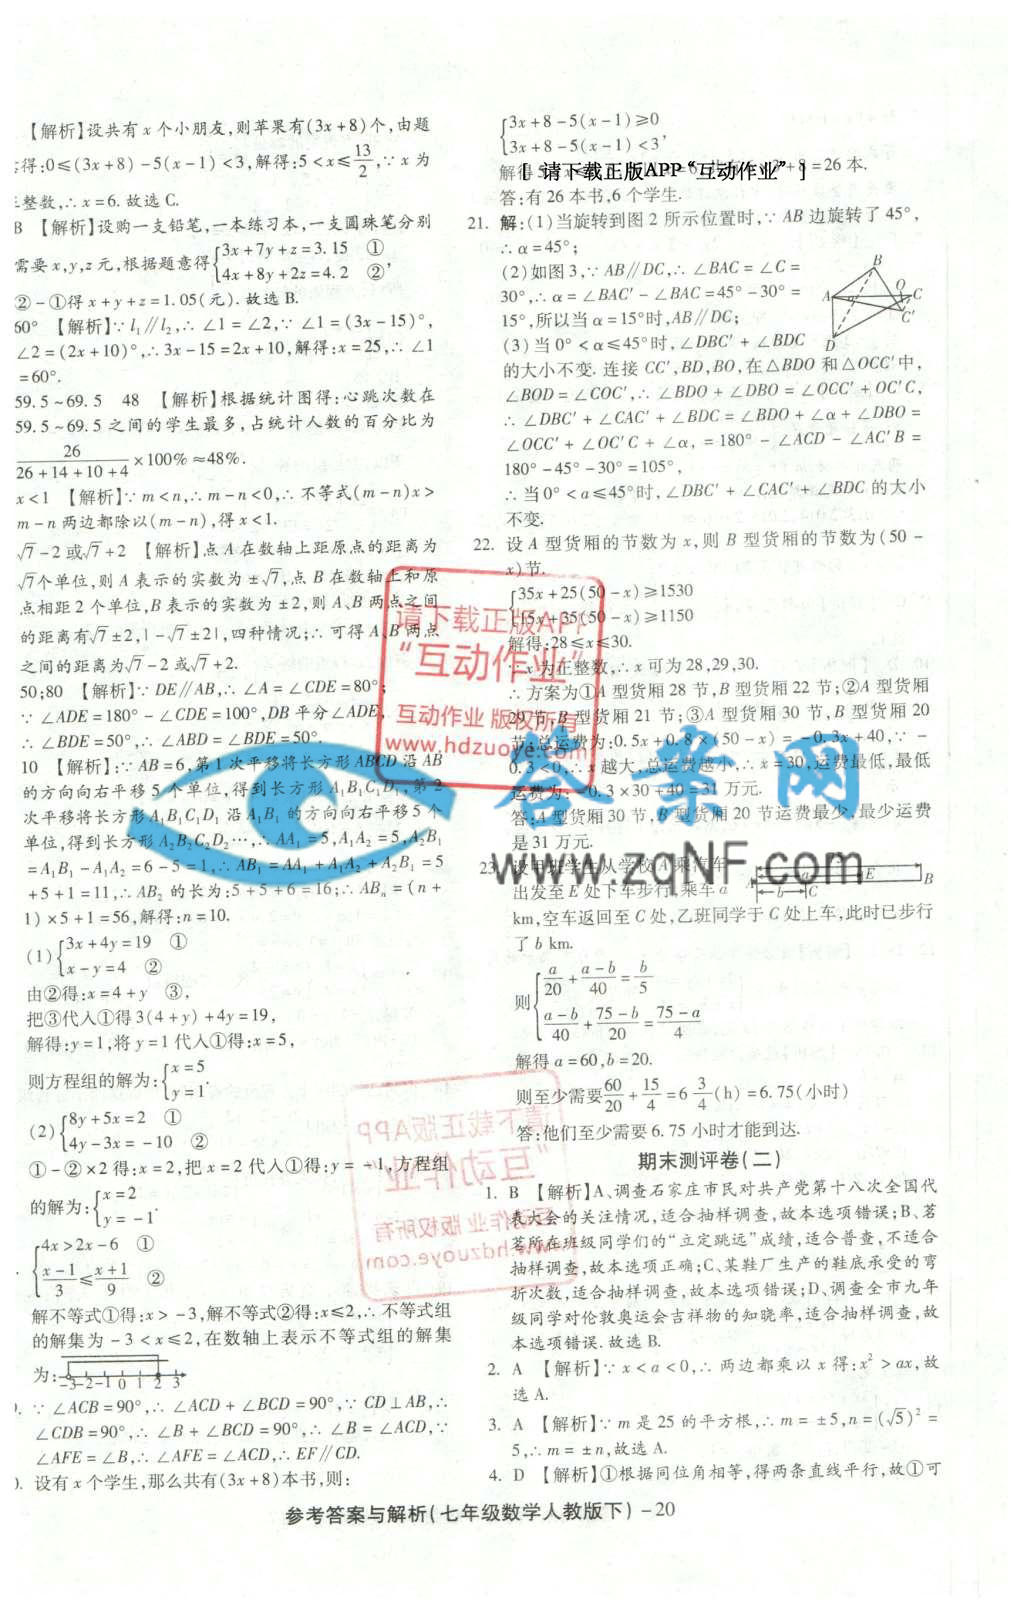 【解析】设共有 x 个小朋友,则苹果有(3x+8)个,由题
得:0≤(3x+8)-5(x-1)<3,解得:5<x≤13/2,∵x 为
整数,∴x=6.故选 C.
B 【解析】设购一支铅笔,一本练习本,一支圆珠笔分别
需要 x,y,z 元,根据题意得{3x+7y+z=3.15 ① 4x+8y+2z=4.2 ②,
②-①得 x+y+z=1.05(元).故选 B.
60° 【解析】∵l₁∥l₂,∴∠1=∠2,∵∠1=(3x-15)°,
∠2=(2x+10)°,∴3x-15=2x+10,解得:x=25,∴∠1
=60°.
59.5~69.5 48 【解析】根据统计图得:心跳次数在
59.5~69.5 之间的学生最多,占统计人数的百分比为
26/(26+14+10+4)×100%≈48%.
x<1 【解析】∵m<n,∴m-n<0,∴不等式(m-n)x>
m-n 两边都除以(m-n),得 x<1.
√7-2 或√7+2 【解析】点 A 在数轴上距原点的距离为
√7个单位,则 A 表示的实数为±√7,点 B 在数轴上和原
点相距 2 个单位,B 表示的实数为±2,则 A、B 两点之间
的距离有√7±2,|-√7±2|,四种情况;∴可得 A、B 两点
之间的距离为√7-2 或√7+2.
50;80 【解析】∵DE∥AB,∴∠A=∠CDE=80°;
∵∠ADE=180°-∠CDE=100°,DB 平分∠ADE,
∴∠BDE=50°,∴∠ABD=∠BDE=50°.
10 【解析】:∵AB=6,第 1 次平移将长方形 ABCD 沿 AB
的方向向右平移 5 个单位,得到长方形 A₁B₁C₁D₁,第 2
次平移将长方形 A₁B₁C₁D₁ 沿 A₁B₁ 的方向向右平移 5 个
单位,得到长方形 A₂B₂C₂D₂…,∴AA₁=5,A₁A₂=5,A₂B₁
=A₁B₁-A₁A₂=6-5=1,∴AB₁=AA₁+A₁A₂+A₂B₁=5
+5+1=11,∴AB₂ 的长为:5+5+6=16;∴ABₙ=(n+
1)×5+1=56,解得:n=10.
(1){3x+4y=19 ① x-y=4 ②
由②得:x=4+y ③,
把③代入①得 3(4+y)+4y=19,
解得:y=1,将 y=1 代入①得:x=5,
则方程组的解为:{x=5 y=1.
(2){8y+5x=2 ① 4y-3x=-10 ②
①-②×2 得:x=2,把 x=2 代入①得:y=-1,方程组
的解为:{x=2 y=-1.
{4x>2x-6 ① (x-1)/3≤(x+1)/9 ②
解不等式①得:x>-3,解不等式②得:x≤2,∴不等式组
的解集为-3<x≤2,在数轴上表示不等式组的解集
为: -3 -2 -1 0 1 2 3
∵∠ACB=90°,∴∠ACD+∠BCD=90°,∵CD⊥AB,∴
∠CDB=90°,∴∠B+∠BCD=90°,∴∠B=∠ACD,∵
∠AFE=∠B,∴∠AFE=∠ACD,∴EF∥CD.
设有 x 个学生,那么共有(3x+8)本书,则:
{3x+8-5(x-1)≥0 3x+8-5(x-1)<3,
[ 请下载正版APP“互动作业” ]
+8=26 本.
答:有 26 本书,6 个学生.
21. 解:(1)当旋转到图 2 所示位置时,∵AB 边旋转了 45°,
∴α=45°;
(2)如图 3,∵AB∥DC,∴∠BAC=∠C=
30°,∴α=∠BAC′-∠BAC=45°-30°=
15°,所以当 α=15°时,AB∥DC;
B A O C C′ D
(3)当 0°<α≤45°时,∠DBC′+∠BDC
的大小不变.连接 CC′,BD,BO,在△BDO 和△OCC′中,
∠BOD=∠COC′,∴∠BDO+∠DBO=∠OCC′+OC′C,
∴∠DBC′+∠CAC′+∠BDC=∠BDO+∠α+∠DBO=
∠OCC′+∠OC′C+∠α,=180°-∠ACD-∠AC′B=
180°-45°-30°=105°,
∴当 0°<α≤45°时,∠DBC′+∠CAC′+∠BDC 的大小
不变.
22. 设 A 型货厢的节数为 x,则 B 型货厢的节数为(50-
x)节.
{35x+25(50-x)≥1530 15x+35(50-x)≥1150
解得:28≤x≤30.
∵x 为正整数,∴x 可为 28,29,30.
∴方案为①A 型货厢 28 节,B 型货厢 22 节;②A 型货厢
29 节,B 型货厢 21 节;③A 型货厢 30 节,B 型货厢 20
节;总运费为:0.5x+0.8×(50-x)=-0.3x+40,∵-
0.3<0,∴x 越大,总运费越小,∴x=30,运费最低,最低
运费为:-0.3×30+40=31 万元.
答:A 型货厢 30 节,B 型货厢 20 节运费最少,最少运费
是 31 万元.
23. 设甲班学生从学校 A 乘汽车
出发至 E 处下车步行,乘车 a
A a E B b C
km,空车返回至 C 处,乙班同学于 C 处上车,此时已步行
了 b km.
则{a/20+(a-b)/40=b/5 (a-b)/40+(75-b)/20=(75-a)/4
解得 a=60,b=20.
则至少需要60/20+15/4=6 3/4(h)=6.75(小时)
答:他们至少需要 6.75 小时才能到达.
期末测评卷(二)
1. B 【解析】A、调查石家庄市民对共产党第十八次全国代
表大会的关注情况,适合抽样调查,故本选项错误;B、茗
茗所在班级同学们的“立定跳远”成绩,适合普查,不适合
抽样调查,故本选项正确;C、某鞋厂生产的鞋底承受的弯
折次数,适合抽样调查,故本选项错误;D、调查全市九年
级同学对伦敦奥运会吉祥物的知晓率,适合抽样调查,故
本选项错误.故选 B.
2. A 【解析】∵x<a<0,∴两边都乘以 x 得:x²>ax,故
选 A.
3. A 【解析】∵m 是 25 的平方根,∴m=±5,n=(√5)²=
5,∴m=±n,故选 A.
4. D 【解析】①根据同位角相等,得两条直线平行,故①可
参考答案与解析(七年级数学人教版下)-20
请下载正版APP
“互动作业”
互动作业 版权所有
www.hdzuoye.com
答案网
www.zqNF.com
请下载正版APP
“互动作业”
互动作业 版权所有
www.hdzuoye.com